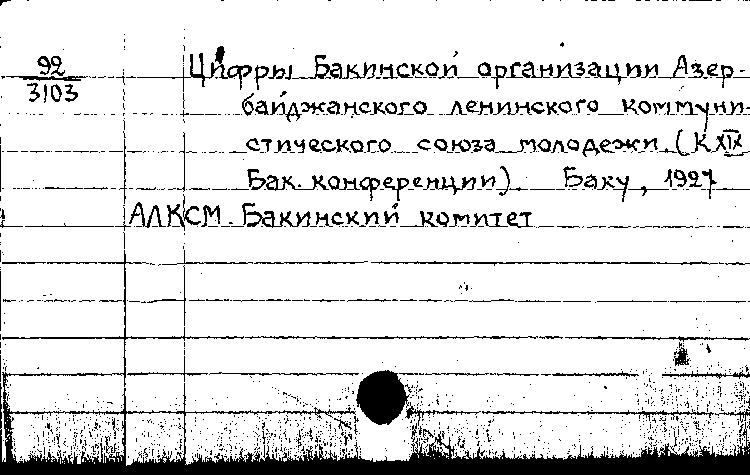 92
3103
Цифры Бакинской организации Азер-
байджанского ленинского коммуни-
стического союза молодежи. (К XIX
Бак. конференции). Баку, 1927
АЛКСМ. Бакинский комитет